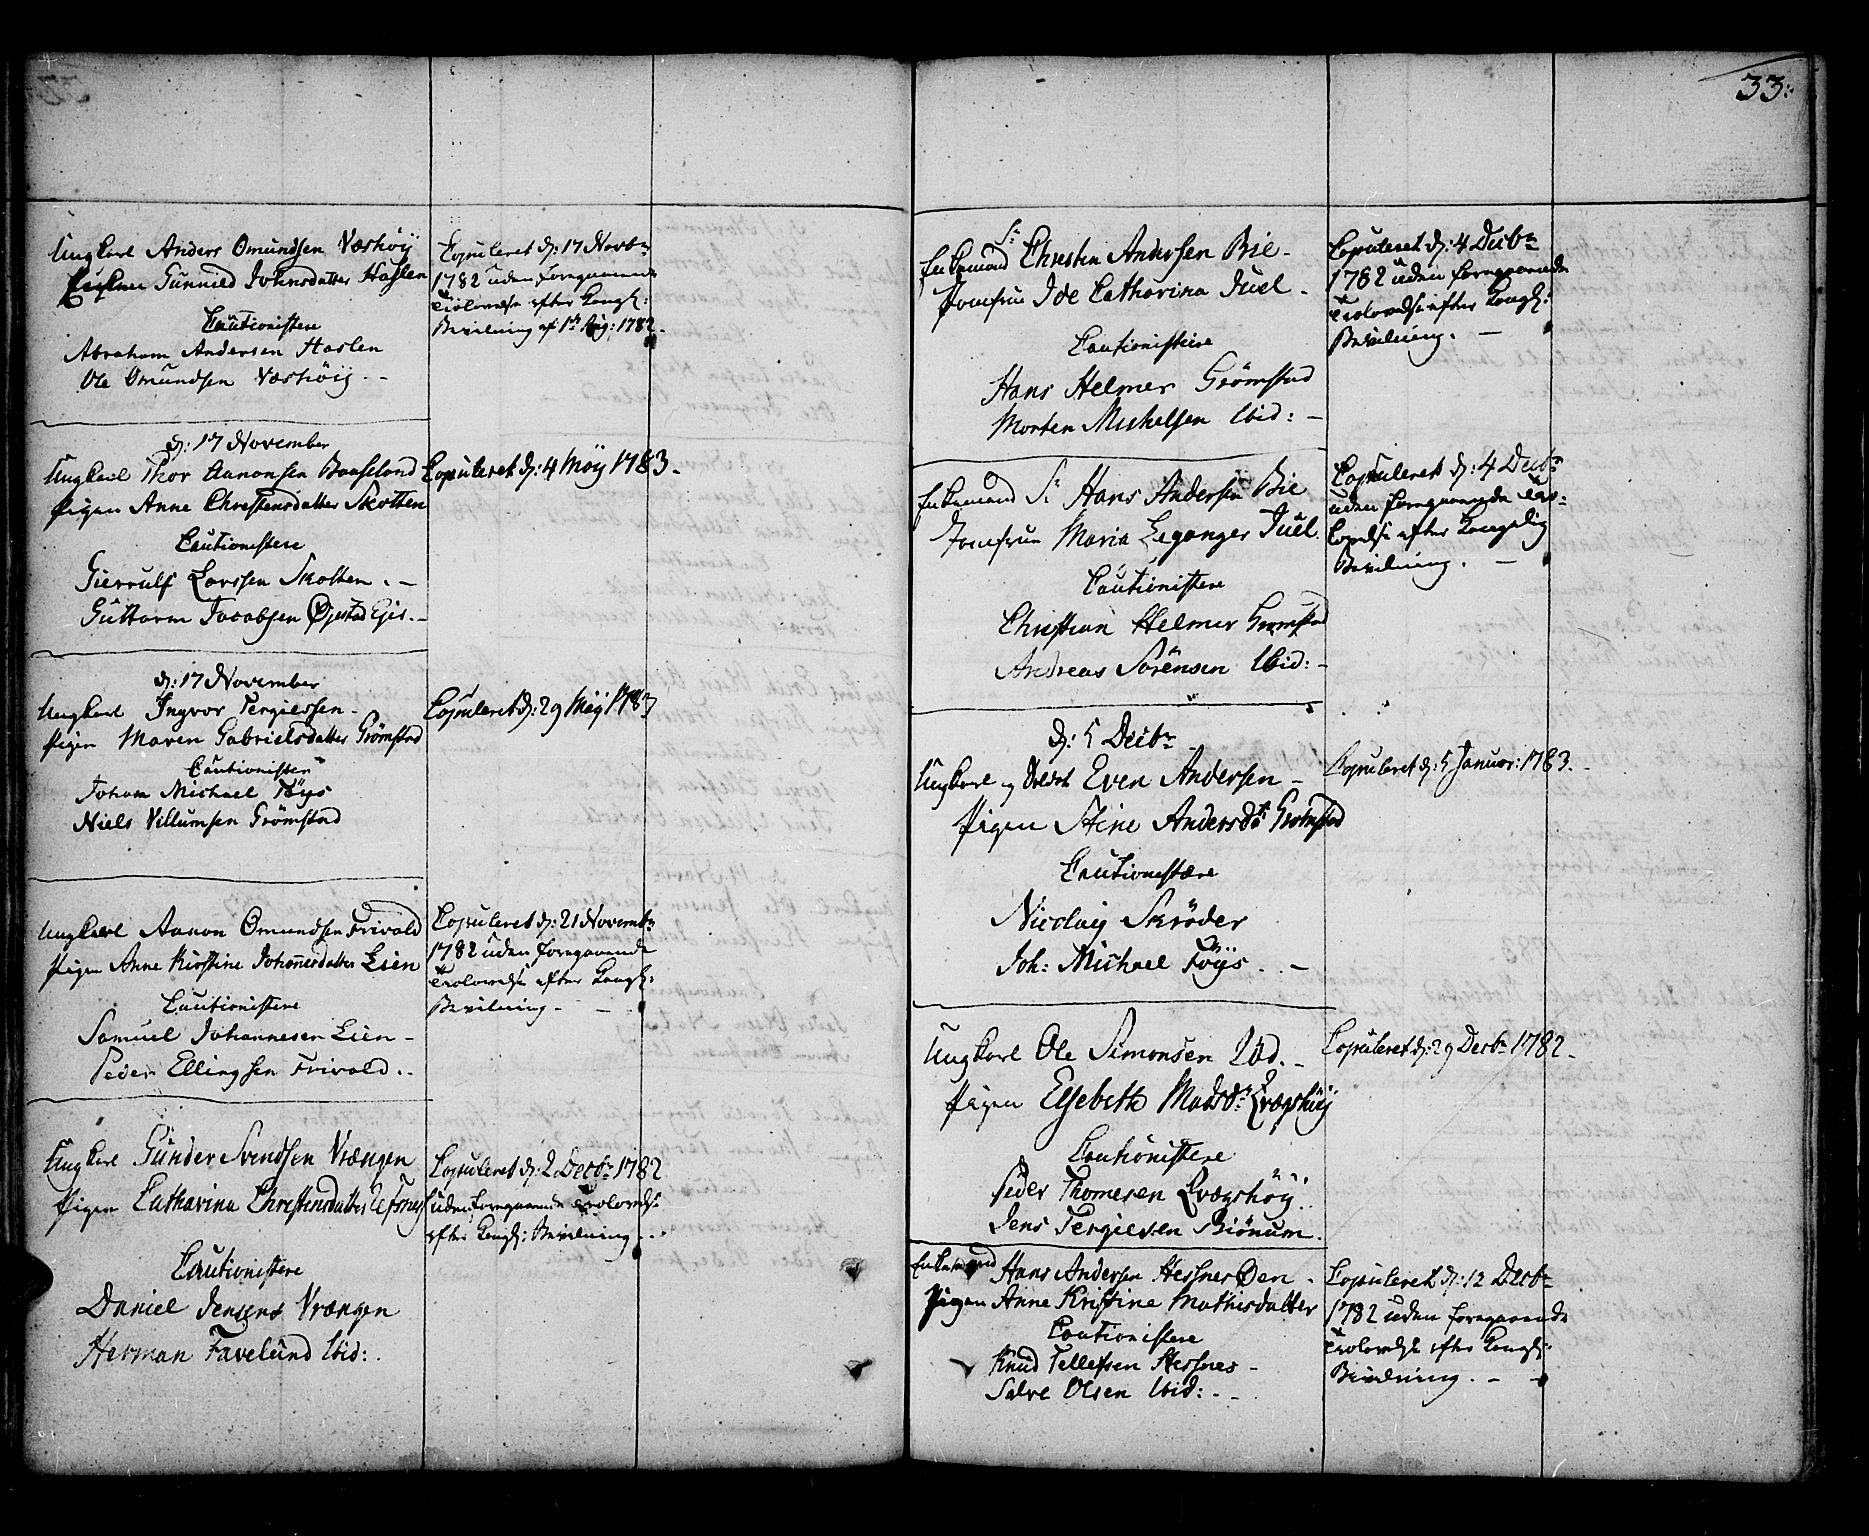 Ungkarl Anders Omundsen Væshøÿ
Enken Gunnild Johnsdatter Haslen
Cautionistere
Abraham Andersen Haslen
Ole Omundsen Væshøÿ. -
Copuleret d: 17 Novbr
1782 uden foregaaende
Trolovelse efter Kongl:
Bevilning af 1ste Aug: 1782.
d: 17 November
Ungkarl Thor Aanonsen Baaseland
Pigen Anne Christensdatter Skotten
Cautionistere
Gierrulf Larssen Skotten. -
Guttorm Jacobsen Øjestad Ejer. -
Copuleret d: 4 Maÿ 1783.
d: 17 November
Ungkarl Ingvor Tergiessen -
Pigen Maren Gabrielsdatter Grømstad
Cautionister
Johan Michael Föÿs
Niels Villumsen Grømstad
Copuleret d: 29 Maÿ 1783
Ungkarl Aanon Omundsen Frivold
Pigen Anne Kirstine Johannesdatter Lien
Cautionistere
Samuel Johannesen Lien -
Peder Ellingsen Frivold. -
Copuleret d: 21 Novembr
1782 uden foregaaende
Trolovelse efter Kongl:
Bevilning -
Ungkarl Gunder Svendsen Vrængen
Pigen Catharina Christensdatter
Cautionistere
Daniel Jensens Vrængen
Herman Favelund ibid:.
Copuleret d: 2 Decbr 1782
uden foregaaende Trolovelse
efter Kongl: Bevilning. . .
33:
Enkemand Sr Christen Andersen Bie -
Jomfrue Ide Catharina Juel -
Cautionistere
Hans Helmer Grømstad
Morten Michelsen ibid: -
Copuleret d: 4 Decbr
1782 uden foregaaende
Trolovelse efter Kongl:
Bevilning. -
Enkemand Sr Hans Andersen Bie
Jomfrue Maria Leganger Juel
Cautionistere
Christian Helmer Grømstad
Andreas Sørensen ibid: -
Copuleret d: 4 Decbr
uden foregaaende Tro:
lovelse efter Kongelig
Bevilning. -
d: 5 Decbr
Ungkarl og Soldat Even Andersen -
Pigen Stine Andersdtr Gromstad
Cautionistere
Nicolaiy Skrøder
Joh: Michael Föÿs. . -
Copuleret d: 5 Januar: 1783. -
Ungkarl Ole Simonsen -
Pigen Elsebeth Madsdr
Cautionistere
Peder Thomesen
Jens Tergiesen Biönum.
Copuleret d: 29 Decbr 1782. -
Enkemand Hans Andersen Hesnes Øen -
Pigen Anne Kristine Mathisdatter
Cautionistere
Knud Tellefsen Hesnes -
Salve Olsen ibid: - -
Copuleret d: 12 Decbr
1782 uden foregaaende
Trolovelse efter Kongl:
Bevilning. - -